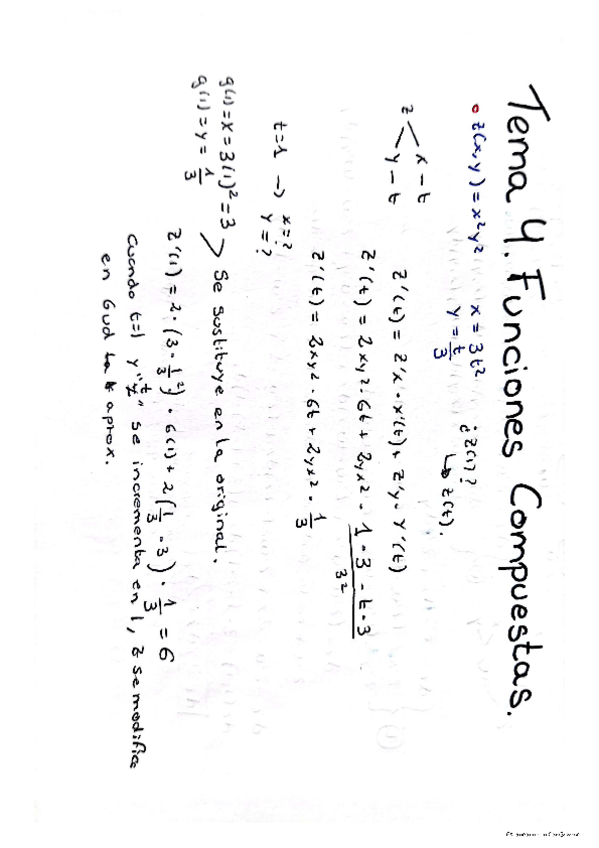 Tema 4. Funciones Compuestas.
• z(x,y) = x²y²   x = 3t²   ¿z(1)?
y = t/3   ↳ z(t).
z < x - t
y - t
z'(t) = z'x · x'(t) + z'y · y'(t)
z'(t) = 2xy² · 6t + 2yx² · (1·3 - t·3)/3²
z'(t) = 2xy² · 6t + 2yx² · 1/3
t=1 → x=?
y=?
g(1) = x = 3(1)² = 3
g(1) = y = 1/3
> Se sustituye en la original.
z'(1) = 2 · (3 · 1/3²) · 6(1) + 2(1/3 · 3) · 1/3 = 6
cuando t=1 y "t" se incrementa en 1, z se modifica
en 6ud aprox.